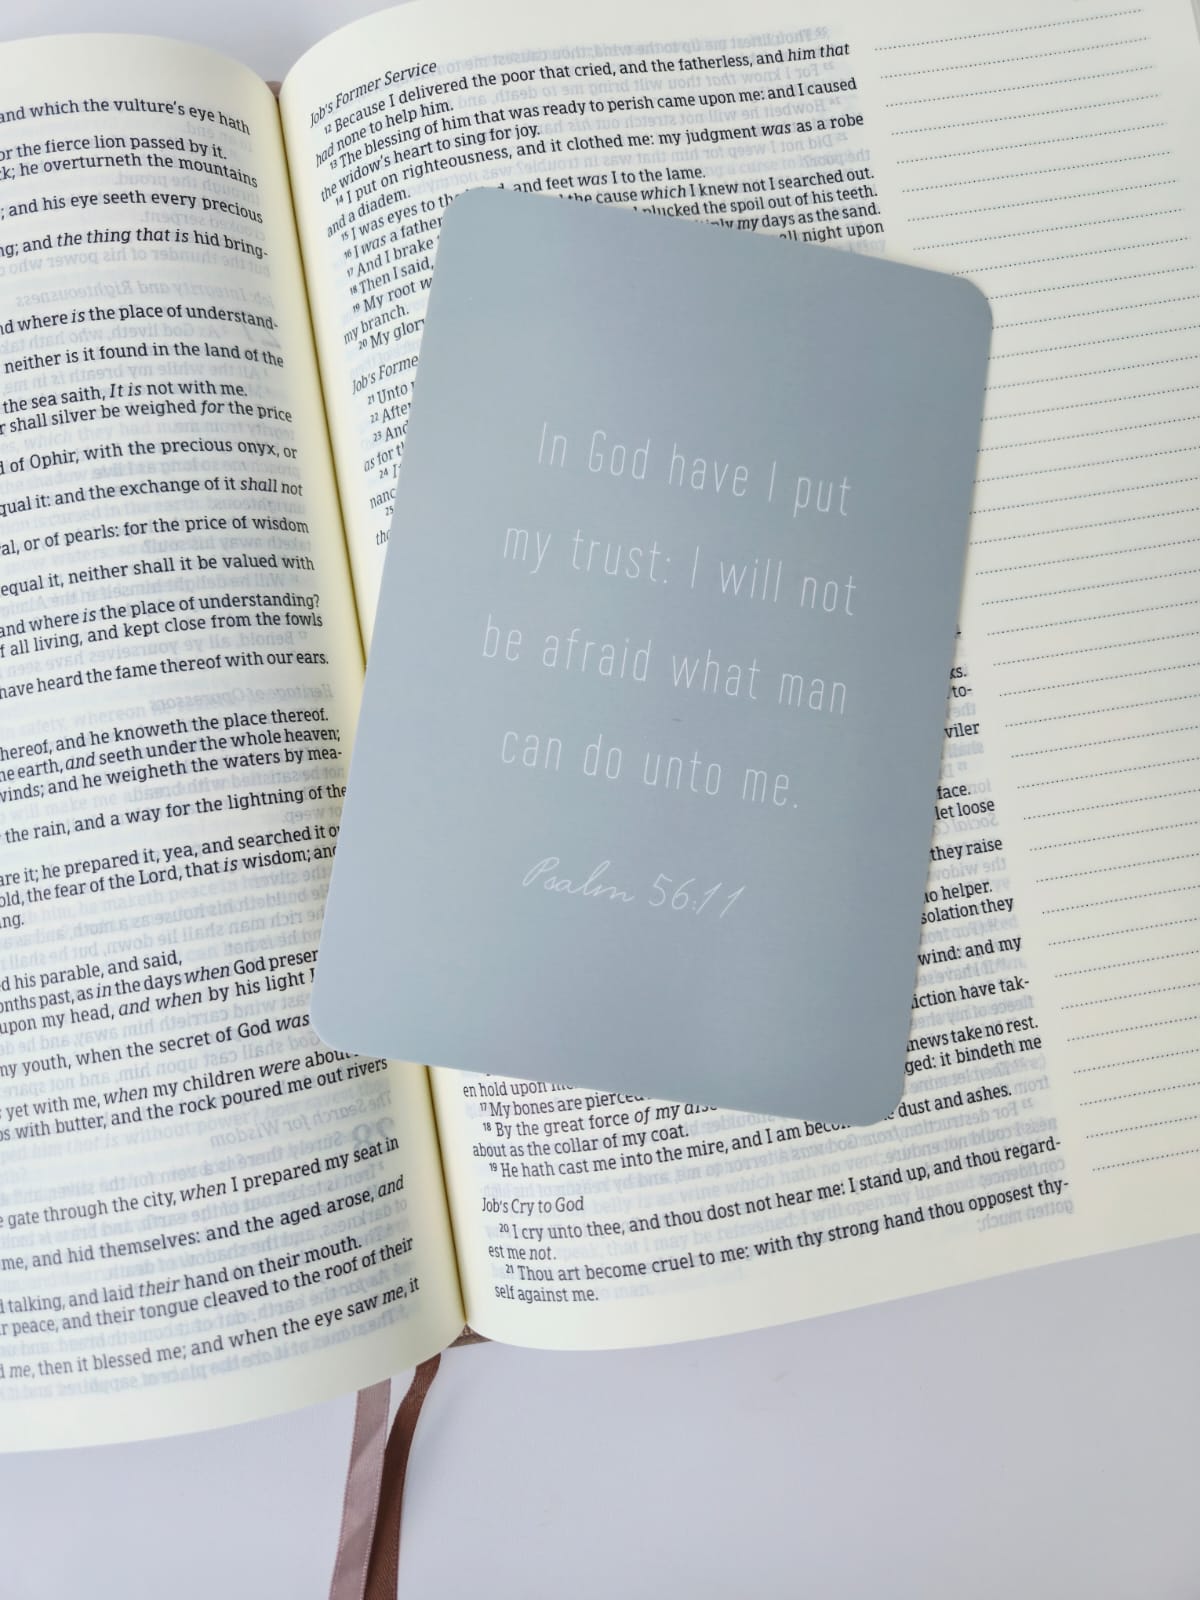 and which the vulture's eye hath
or the fierce lion passed by it.
k; he overturneth the mountains
; and his eye seeth every precious
ng; and the thing that is hid bring-
nd where is the place of understand-
neither is it found in the land of the
the sea saith, It is not with me.
r shall silver be weighed for the price
d of Ophir, with the precious onyx, or
qual it: and the exchange of it shall not
al, or of pearls: for the price of wisdom
equal it, neither shall it be valued with
and where is the place of understanding?
f all living, and kept close from the fowls
have heard the fame thereof with our ears.
hereof, and he knoweth the place thereof.
he earth, and seeth under the whole heaven;
winds; and he weigheth the waters by mea-
the rain, and a way for the lightning of the
are it; he prepared it, yea, and searched it ou
old, the fear of the Lord, that is wisdom; and
ng.
d his parable, and said,
onths past, as in the days when God preser
upon my head, and when by his light I
my youth, when the secret of God was
yet with me, when my children were about
os with butter, and the rock poured me out rivers
e gate through the city, when I prepared my seat in
me, and hid themselves: and the aged arose, and
d talking, and laid their hand on their mouth.
r peace, and their tongue cleaved to the roof of their
d me, then it blessed me; and when the eye saw me, it
Job's Former Service
12 Because I delivered the poor that cried, and the fatherless, and him that
had none to help him.
13 The blessing of him that was ready to perish came upon me: and I caused
the widow's heart to sing for joy.
14 I put on righteousness, and it clothed me: my judgment was as a robe
and a diadem.
15 I was eyes to th and feet was I to the lame.
16 I was a father the cause which I knew not I searched out.
17 And I brake plucked the spoil out of his teeth.
18 Then I said, my days as the sand.
19 My root w all night upon
my branch.
20 My glory
Job's Forme
21 Unto
22 After
23 And
as for t
24
nanc
25
tho
In God have I put
my trust: I will not
be afraid what man
can do unto me.
Psalm 56:11
ks.
to-
viler
face.
let loose
they raise
no helper.
solation they
wind: and my
iction have tak-
news take no rest.
ged: it bindeth me
dust and ashes.
en hold upon me
17 My bones are pierced
18 By the great force of my dise
about as the collar of my coat.
19 He hath cast me into the mire, and I am becom
Job's Cry to God
20 I cry unto thee, and thou dost not hear me: I stand up, and thou regard-
est me not.
21 Thou art become cruel to me: with thy strong hand thou opposest thy-
self against me.